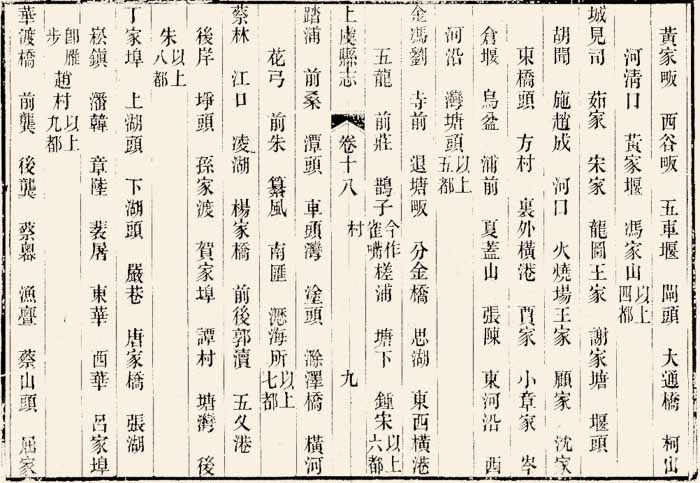 黃家畈　西谷畈　五車堰　閘頭　大通橋　柯山
河清口　黃家堰　馮家山以上四都
城見司　茹家　宋家　龍圖王家　謝家塘　堰頭
胡閘　施趙成　河口　火燒場王家　顧家　沈家
東橋頭　方村　裏外橫港　賈家　小章家　岑
倉堰　烏盆　浦前　夏蓋山　張陳　東河沿　西
河沿　灣塘頭以上五都
金馮劉　寺前　退塘畈　分金橋　思湖　東西橫港
五龍　前莊　鵲子村今作雀嘴　槎浦　塘下　鍾宋以上六都
上虞縣志　卷十八　村　九
踏浦　前桑　潭頭　車頭灣　塗頭　滁澤橋　橫河
花弓　前朱　纂風　南匯　瀝海所以上七都
蔡林　江口　凌湖　楊家橋　前後郭瀆　五夂港
後岸　埩頭　孫家渡　賀家埠　譚村　塘灣　後
朱以上八都
丁家埠　上湖頭　下湖頭　嚴巷　唐家橋　張湖
崧鎮　潘韓　章陸　裴屠　東華　西華　呂家埠
卽雁步　趙村以上九都
華渡橋　前龔　後龔　蔡嶴　漁𤅬　蔡山頭　屈家